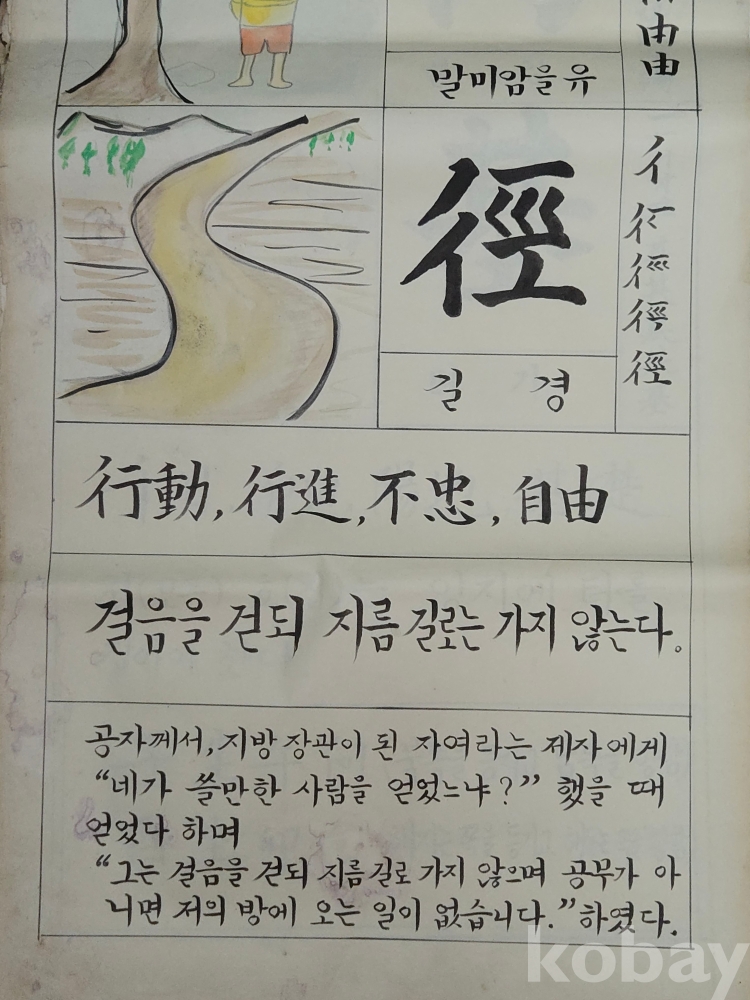 由
말미암을 유
徑
彳
徑
길 경
行動, 行進, 不忠, 自由
걸음을 걷되 지름길로는 가지 않는다.
공자께서, 지방 장관이 된 자여라는 제자에게
“네가 쓸만한 사람을 얻었느냐?” 했을 때
얻었다 하며
“그는 걸음을 걷되 지름길로 가지 않으며 공부가 아
니면 저의 방에 오는 일이 없습니다.” 하였다.
kobay